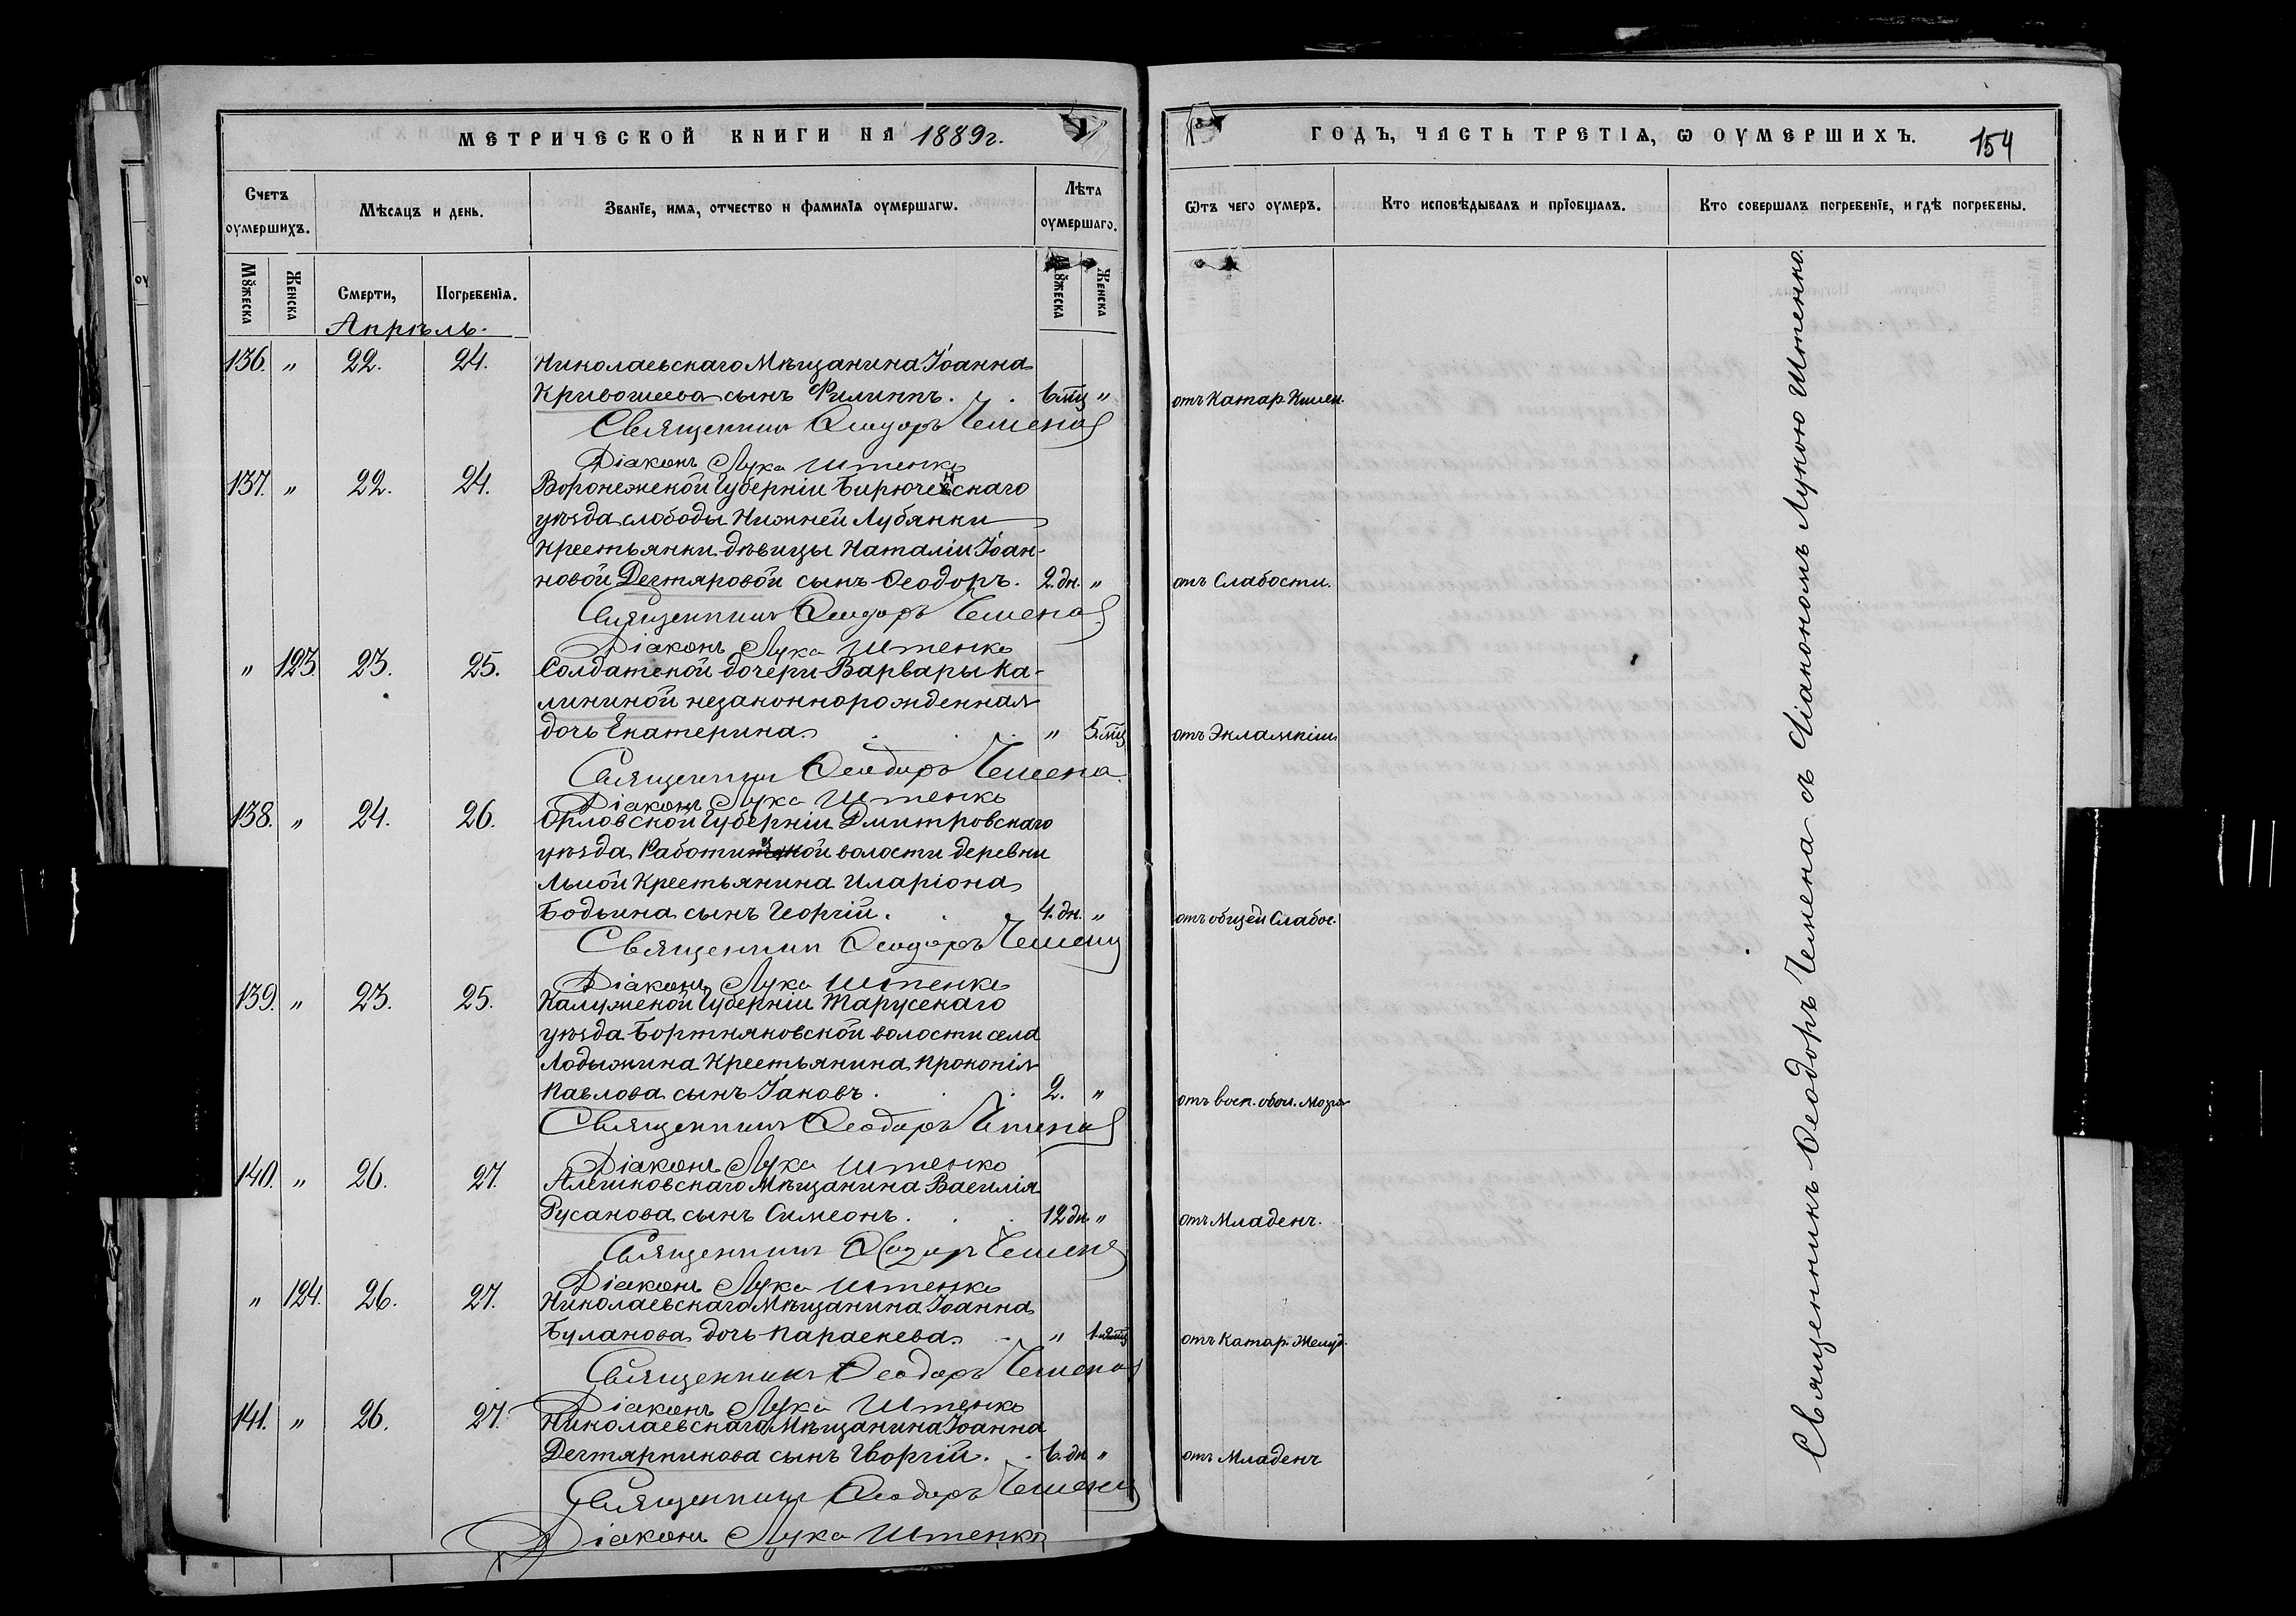 МЕТРИЧЕСКОЙ КНИГИ НА 1889 г.
Счетъ оумершихъ.
Мѣсяцъ и день.
Званїе, имѧ, отчество и фамилїѧ оумершагѡ.
Лѣта оумершаго.
Мꙋжеска
Женска
Смерти,
Погребенїѧ.
Мꙋжеска
Женска
Апрѣль.
136. " 22. 24. Николаевскаго Мѣщанина Іоанна
Кривошеева сынъ Филиппъ. . 6 мц "
Священникъ Ѳеодоръ Чемена
Діаконъ Лука Иштенко
137. " 22. 24. Воронежской Губерніи Бирюченскаго
уѣзда слободы Нижней Лубянки
Крестьянки дѣвицы Наталіи Іоан-
новой Дегтяровой сынъ Ѳеодоръ. 2. дн. "
Священникъ Ѳеодоръ Чемена
Діаконъ Лука Иштенко
" 123. 23. 25. Солдатской дочери Варвары Ка-
лининой незаконнорожденная
дочь Екатерина . . . " 5 мц
Священникъ Ѳеодоръ Чемена
Діаконъ Лука Иштенко
138. " 24. 26. Орловской Губерніи Дмитровскаго
уѣзда волости деревни
Крестьянина Иларіона
Бодьина сынъ Георгій. . . 4. дн. "
Священникъ Ѳеодоръ Чемена
Діаконъ Лука Иштенко
139. " 23. 25. Калужской Губерніи Тарусскаго
уѣзда Бортняковской волости села
Лодыжина Крестьянина Прокопія
Павлова сынъ Іаковъ. . . 2. "
Священникъ Ѳеодоръ Чемена
Діаконъ Лука Иштенко
140. " 26. 27. Алешковскаго Мѣщанина Василія
Русанова сынъ Симеонъ. . . 12 дн. "
Священникъ Ѳеодоръ Чемена
Діаконъ Лука Иштенко
" 124. 26. 27. Николаевскаго Мѣщанина Іоанна
Буланова дочь Параскева. . "
Священникъ Ѳеодоръ Чемена
Діаконъ Лука Иштенко
141. " 26. 27. Николаевскаго Мѣщанина Іоанна
Дегтярникова сынъ Георгій. . 6. дн "
Священникъ Ѳеодоръ Чемена
Діаконъ Лука Иштенко
ГОДЪ, ЧАСТЬ ТРЕТІѦ, Ѡ ОУМЕРШИХЪ. 154
Ѿтъ чего оумеръ.
Кто исповѣдывалъ и прїобщалъ.
Кто совершалъ погребенїе, и гдѣ погребены.
отъ Катар. Кишеч.
отъ Слабости.
отъ Эклампсіи
отъ общей Слабос.
отъ восп. обол. Мозга
отъ Младенч.
отъ Катар. Желуд.
отъ Младенч
Священникъ Ѳеодоръ Чемена съ Діакономъ Лукою Иштенко.